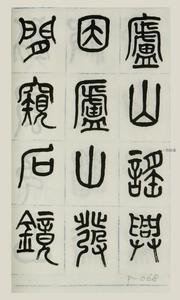 廬山謠興
因廬山發
閒窺石鏡
P-068